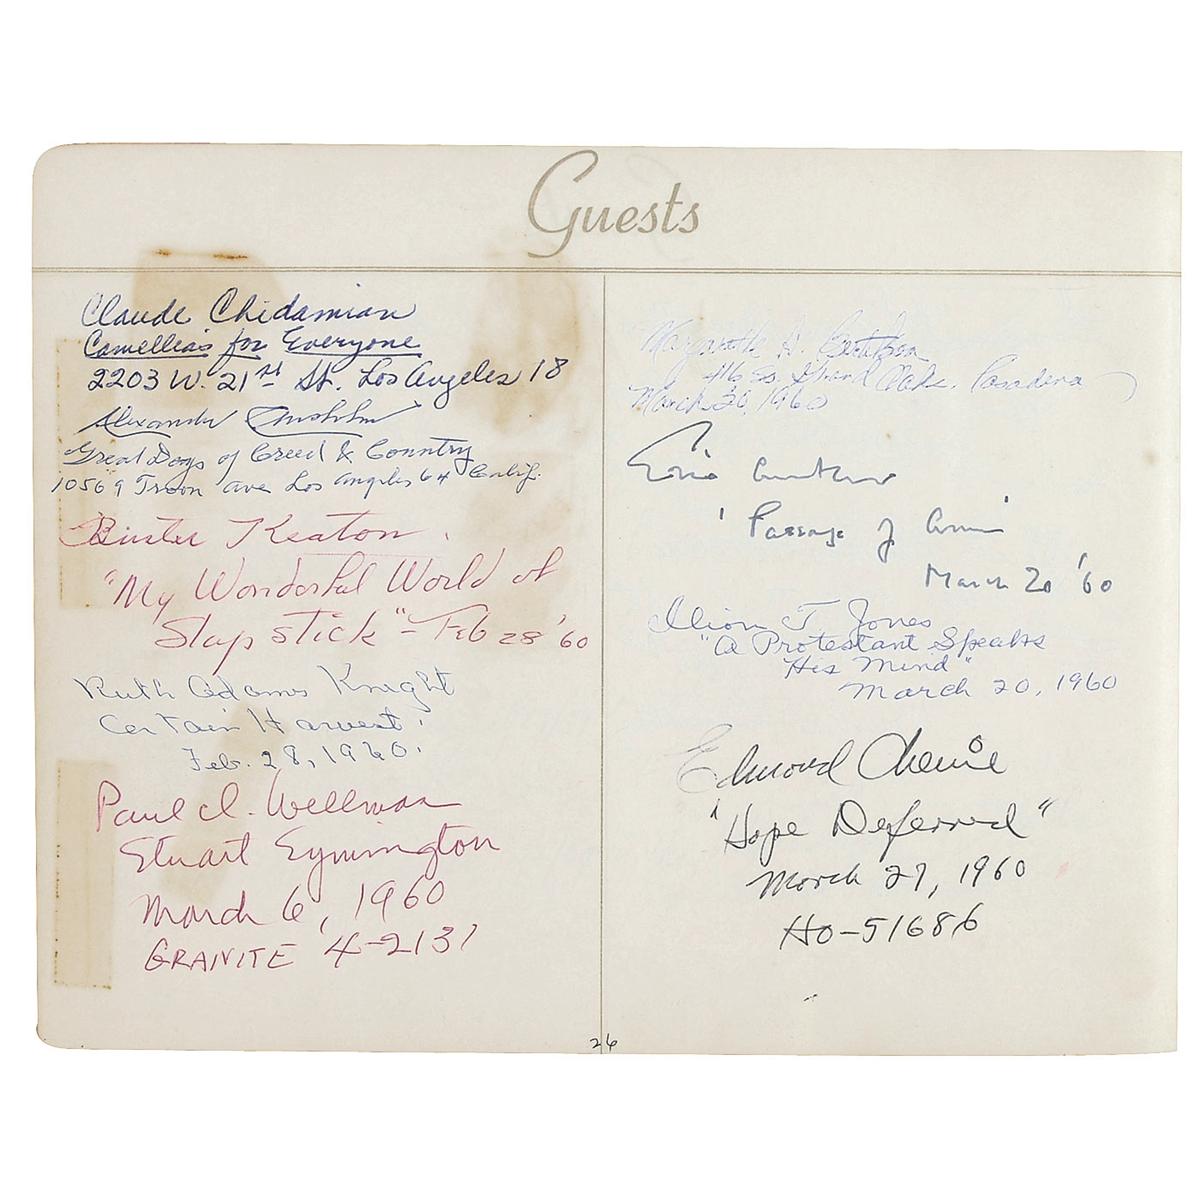 Guests
Claude Chidamian
Camellias for Everyone
2203 W. 21st St. Los Angeles 18
Alexander
Great Dogs of Creed & Country
10569 Troon ave Los Angeles 64 Calif.
Buster Keaton.
"My Wonderful World of
Slap stick" - Feb 28 '60
Ruth Adams Knight
Certain Harvest.
Feb. 28, 1960.
Paul I. Wellman
Stuart Symington
March 6, 1960
GRANITE 4-2131
416 So. Grand Oaks. Pasadena
March 20, 1960
'Passage of Arms'
March 20 '60
Ilion T. Jones
"A Protestant Speaks
His Mind"
March 20, 1960
Edmond
"Hope Deferred"
March 27, 1960
HO-51686
26